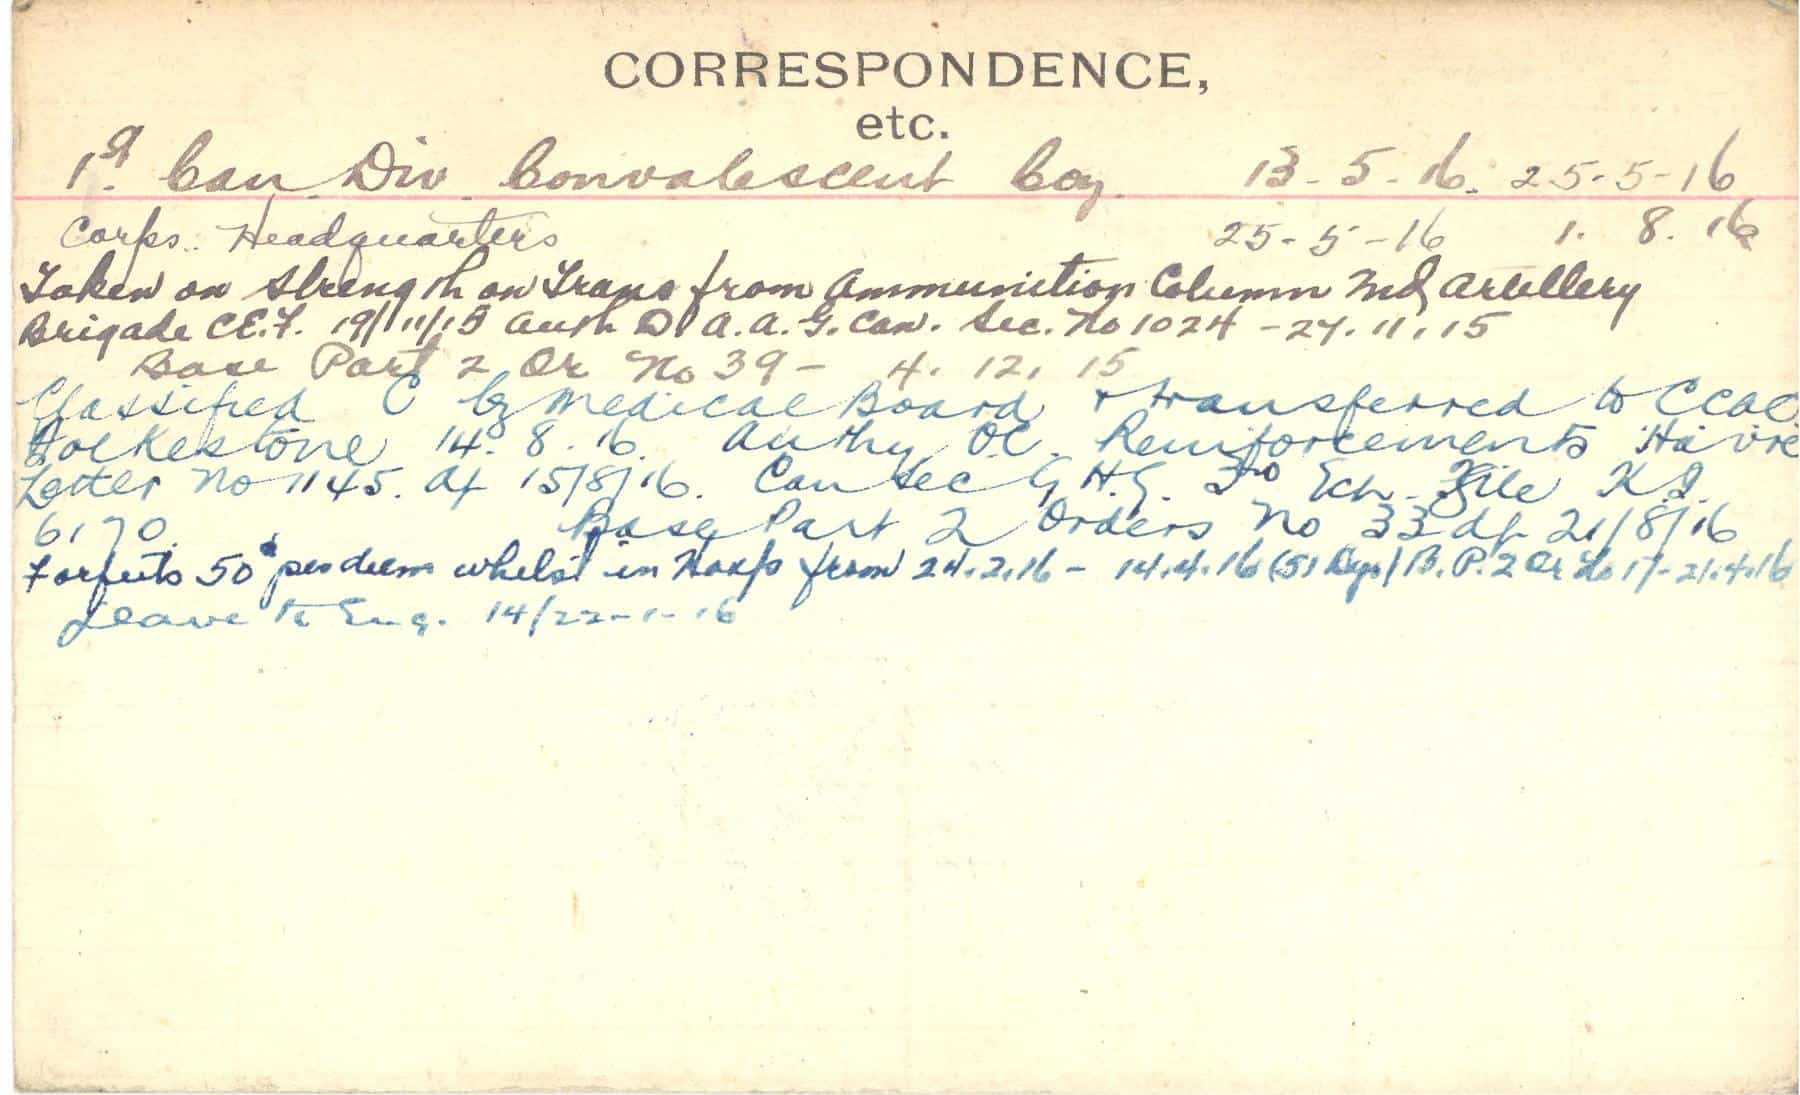 CORRESPONDENCE,
etc.
1st. Can Div Convalescent Coy. 13-5-16. 25-5-16
Corps. Headquarters 25-5-16 1. 8. 16
Taken on Strength on Trans from Ammunition Column Artillery
Brigade C.E.F. 19/11/15 Auth D A.A.G. Can. Sec. No 1024 - 27.11.15
Base Part 2 Or No 39 - 4. 12. 15
Classified C by Medical Board & transferred to CCAC
Folkestone 14. 8. 16. Authy OC. Reinforcements Havre
Letter No 1145. of 15/8/16. Can Sec G.H.Q. 3rd Ech. File K.I.
6170. Base Part 2 Orders No 33 df 21/8/16
Forfeits 50¢ per diem whilst in Hosp from 24.2.16 - 14.4.16 (51 Dys) B.P. 2 Or No 17-21.4.16
Leave to Eng. 14/22-1-16